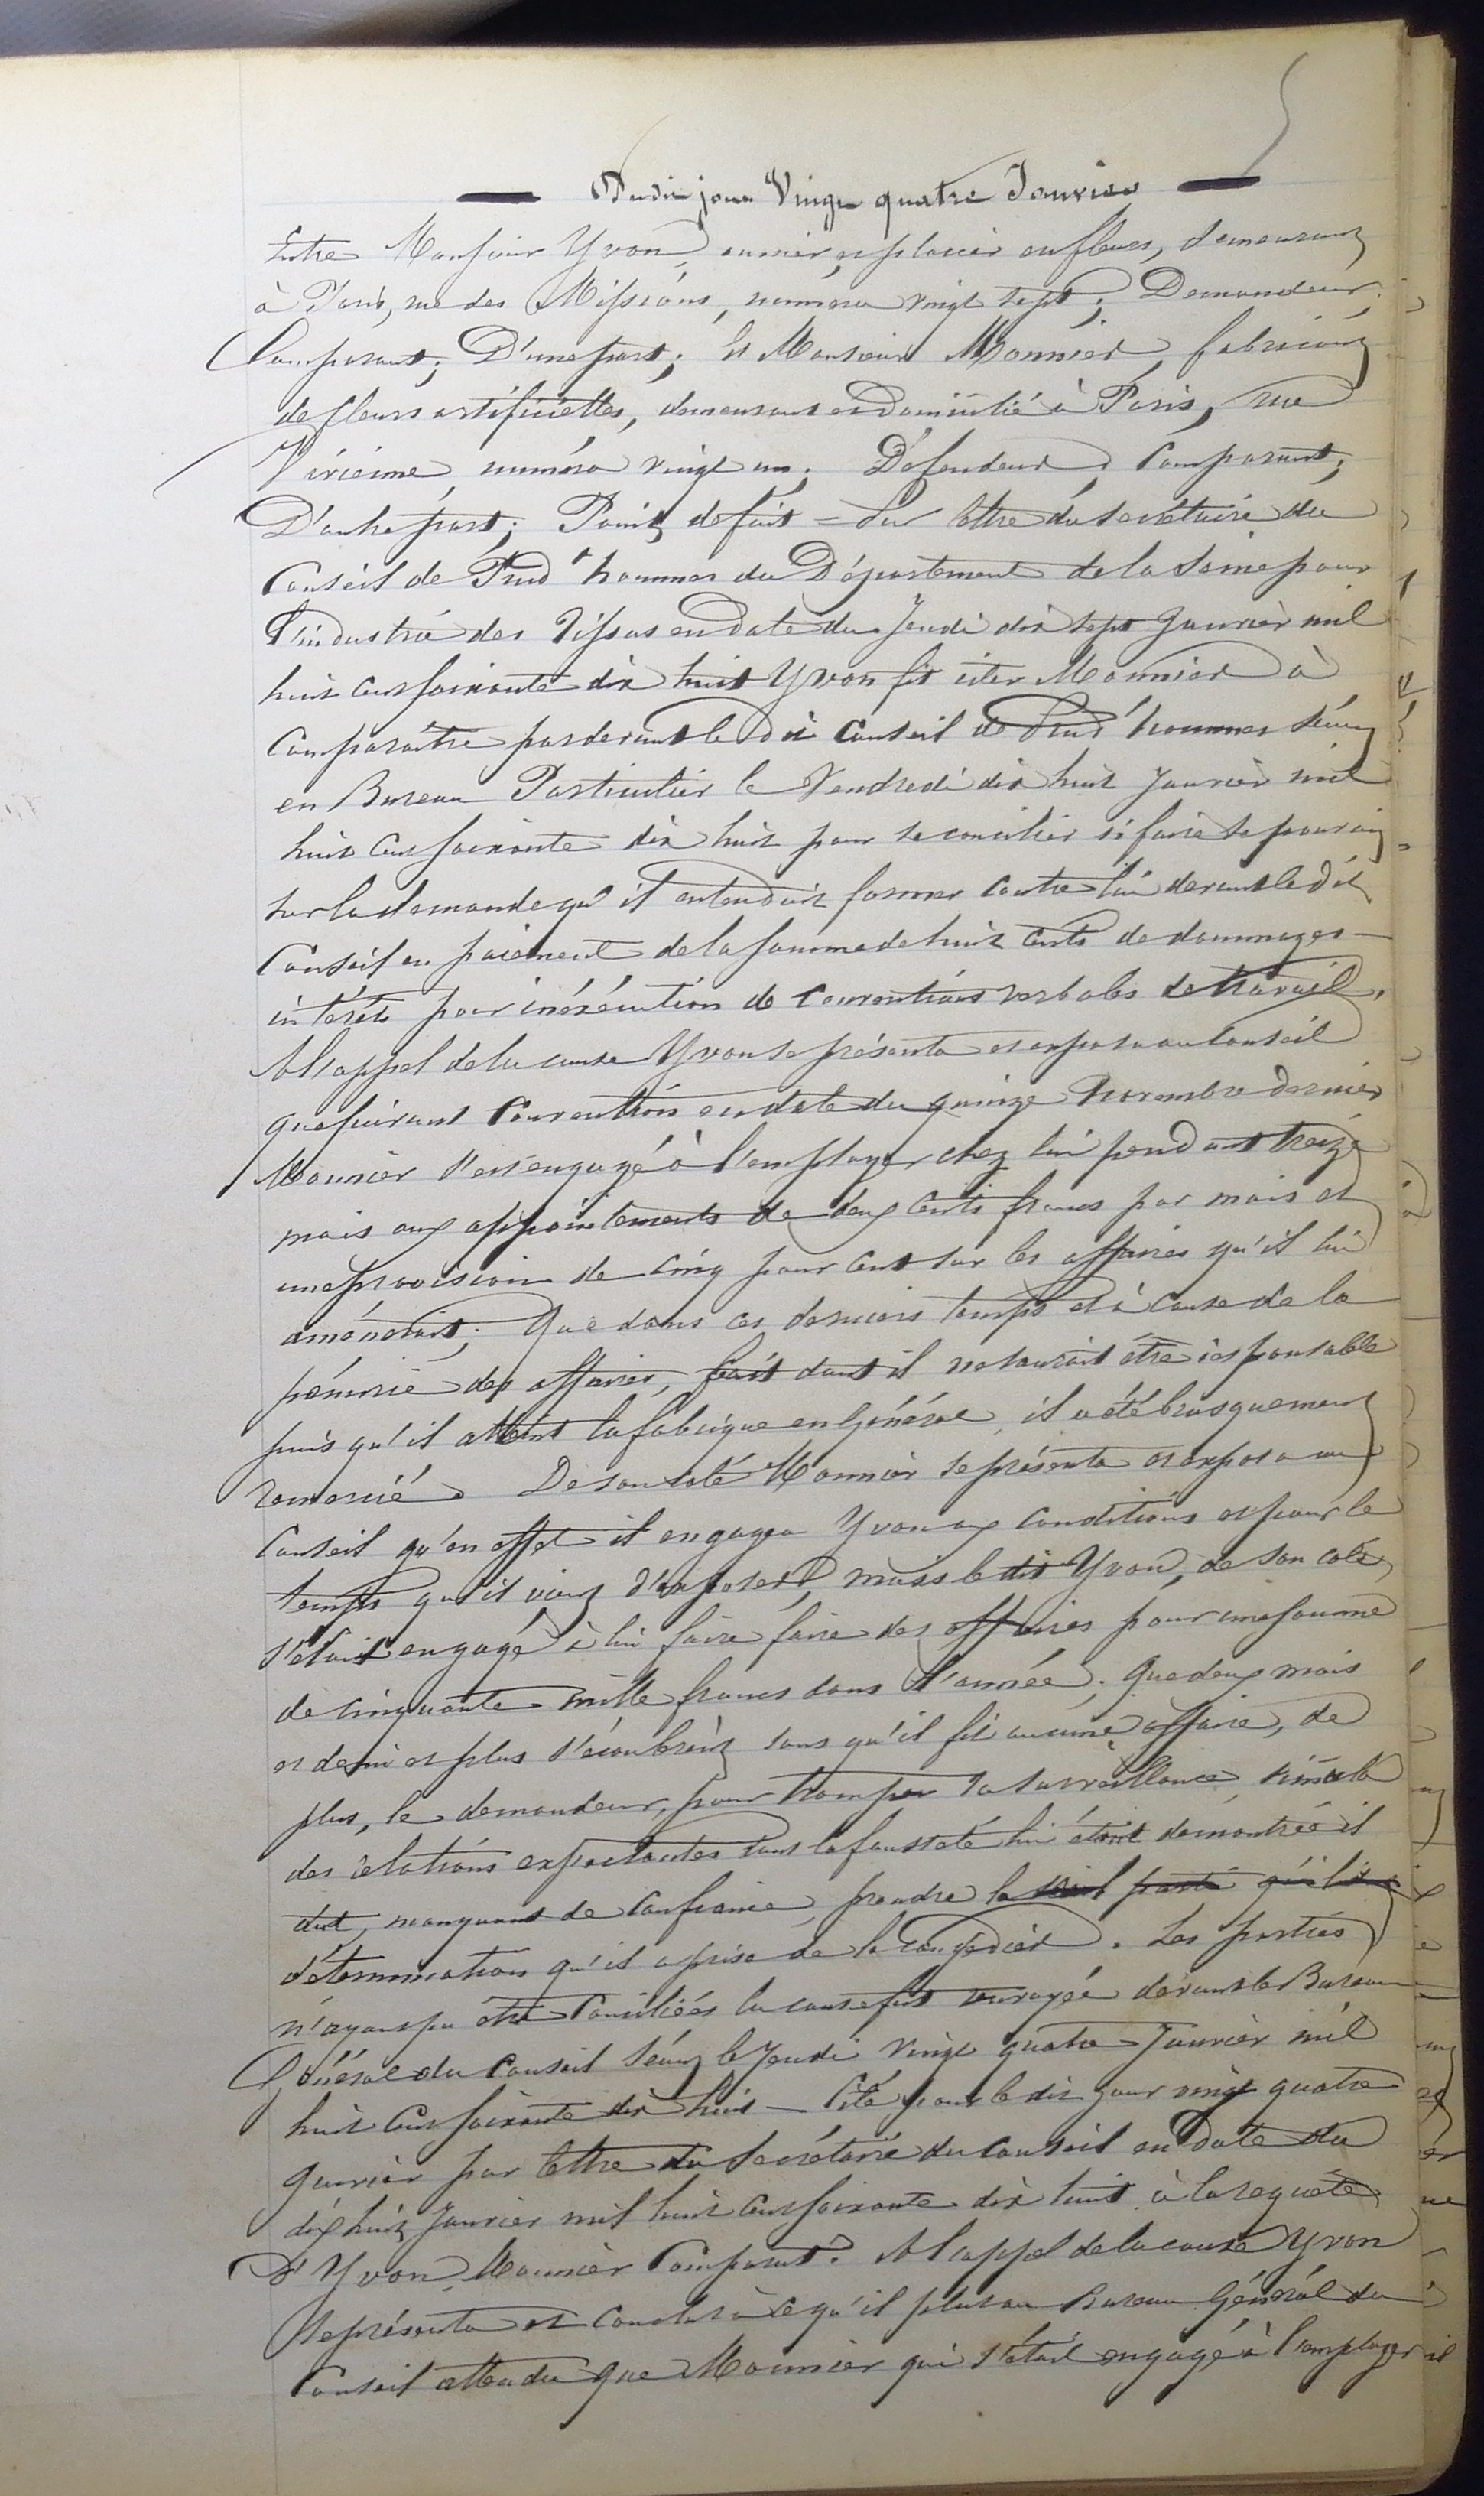 Dudit jour Vingt quatre Janvier
Entre Monsieur Yvon, ouvrier, et placier en fleurs, demeurant
à Paris, rue des Missions, numéro vingt sept; Demandeur;
Comparant; D'une part; Et Monsieur Monnier, fabricant
de fleurs artificielles, demeurant et domicilié à Paris, rue
Vivienne, numéro vingt un; Défendeur; Comparant;
D'autre part; Point de fait = Par lettre du secrétaire du
Conseil de Prud'hommes du Département de la Seine pour
l'industrie des Tissus en date du Jeudi dix sept Janvier mil
huit cent soixante dix huit Yvon fit citer Monnier à
comparaître pardevant le dit Conseil de Prud'hommes séant
en Bureau Particulier le Vendredi dix huit Janvier mil
huit cent soixante dix huit pour se concilier si faire se pouvait
sur la demande qu'il entendait former contre lui devant le dit
Conseil en paiement de la somme de huit cents de dommages-
intérêts pour inéxécution de conventions verbales de travail.
A l'appel de la cause Yvon se présenta et exposa au Conseil
que suivant convention en date du quinze Novembre dernier
Monnier s'est engagé à l'employer chez lui pendant treize
mois aux appointements de deux cents francs par mois et
une provision de cinq pour cent sur les affaires qu'il lui
aménerait; Que dans ces derniers temps et à cause de la
pénurie des affaires, fait dont il ne saurait être responsable
puis qu'il atteint la fabrique en Général, il a été brusquement
remercié. De son coté Monnier se présenta et exposa au
Conseil qu'en effet il engagea Yvon aux conditions et pour le
temps qu'il vient d'exposer, mais le dit Yvon, de son coté,
s'était engagé à lui faire faire des affaires pour une somme
de cinquante mille francs dans l'année; que deux mois
et demi et plus s'écoulèrent sans qu'il fit aucune affaire, de
plus, le demandeur, pour tromper sa surveillance, simula
des relations dont la fausseté lui étant démontrée il
dut, manquant de confiance, prendre la seul parti qu'il
détermination qu'il a prise de le congédier. Les parties
n'ayant pu être conciliées la cause fut renvoyée devant le Bureau
Général du Conseil séant le Jeudi Vingt quatre Janvier mil
huit cent soixante dix huit — Cité pour le dit jour vingt quatre
Janvier par lettre du secrétaire du Conseil en date du
dix huit Janvier mil huit cent soixante dix huit à la requête
d'Yvon, Monnier Comparut. A l'appel de la cause Yvon
se présenta et conclut à ce qu'il plut au Bureau Général du
Conseil attendu que Monnier qui s'était engagé à l'employer